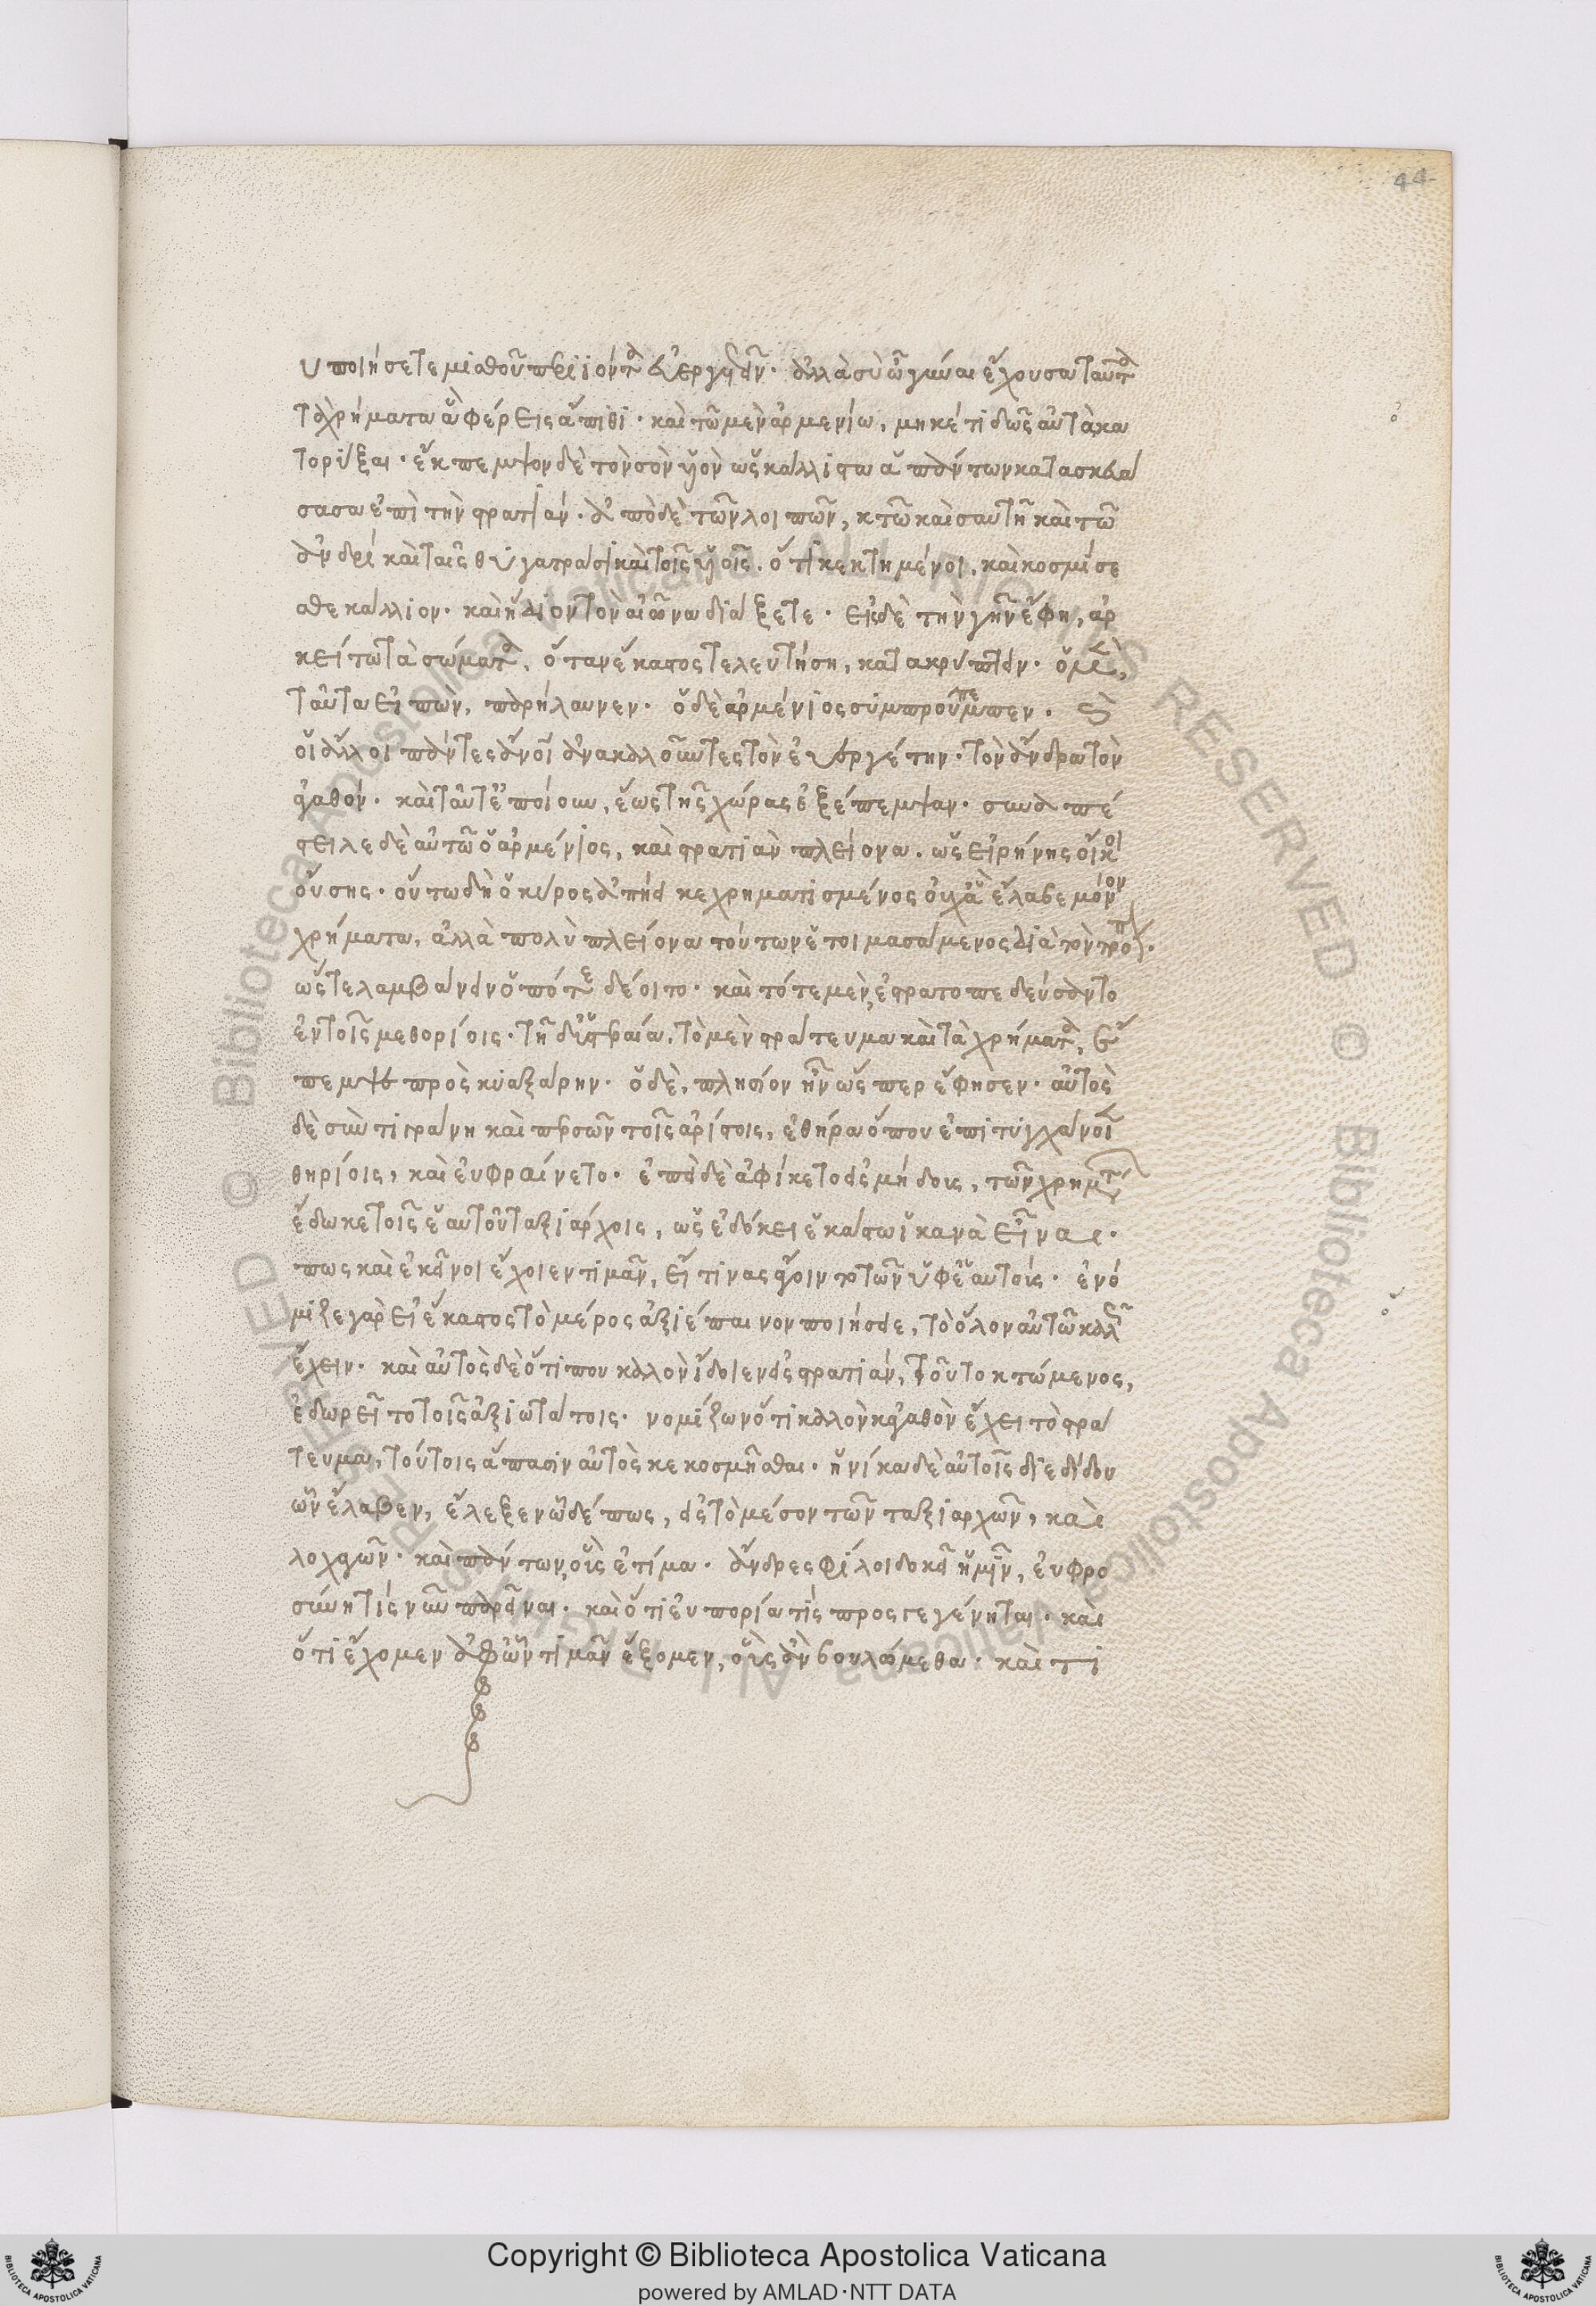 44
υ ποιήσετε μισθοῦ περιιόντα εὐεργετεῖν. ἀλλὰ σὺ ὦ γύναι ἔχουσα ταῦτα
τὰ χρήματα ἃ φέρεις ἄπιθι. καὶ τῶ μὲν ἀρμενίω, μηκέτι δῶς αὐτὰ κα
τορύξαι. ἔκπεμψον δὲ τὸν σὸν υἱὸν ὡς κάλλιστα ἀπ' αὐτῶν κατασκευά
σασα ἐπὶ τὴν στρατιάν. ἀπὸ δὲ τῶν λοιπῶν, κτῶ καὶ σαυτῆ καὶ τῶ
ἀνδρὶ καὶ ταῖς θυγατράσι καὶ τοῖς υἱοῖς. ὅτι κεκτημένοι, καὶ κοσμήσε
σθε κάλλιον. καὶ ἥδιον τὸν αἰῶνα διάξετε. εἰς δὲ τὴν γῆν ἔφη, ἀρ
κείτω τὰ σώματα, ὅταν ἕκαστος τελευτήση, κατακρύπτειν. ὁ μὲν,
ταῦτα εἰπὼν, παρήλαυνεν. ὁ δὲ ἀρμένιος συμπρούπεμπεν. καὶ
οἱ ἄλλοι πάντες ἄνοι ἀνακαλοῦντες τὸν εὐεργέτην. τὸν ἄνδρα τὸν
ἀγαθόν. καὶ ταῦτ' ἐποίουν, ἕως τῆς χώρας ἐξέπεμψαν. συναπέ
στειλε δὲ αὐτῶ ὁ ἀρμένιος, καὶ στρατιὰν πλείονα. ὡς εἰρήνης οἴκοι
οὔσης. οὕτω δὴ ὁ κῦρος ἀπήει κεχρηματισμένος οὐχ ἃ ἔλαβε μόνον
χρήματα, ἀλλὰ πολὺ πλείονα τούτων ἑτοιμασάμενος διὰ τὸν τρόπον.
ὥστε λαμβάνειν ὁπότε δέοιτο. καὶ τότε μὲν, ἐστρατοπεδεύσαντο
ἐν τοῖς μεθορίοις. τῆ δ' ὑστεραία, τὸ μὲν στράτευμα καὶ τὰ χρήματα, ἔ
πεμψε πρὸς κυαξάρην. ὁ δὲ, πλησίον ἦν ὥσπερ ἔφησεν. αὐτὸς
δὲ σὺν τιγράνη καὶ περσῶν τοῖς ἀρίστοις, ἐθήρα ὅπου ἐπιτυγχάνοι
θηρίοις, καὶ εὐφραίνετο. ἐπεὶ δὲ ἀφίκετο εἰς μήδους, τῶν χρημάτων
ἔδωκε τοῖς ἑαυτοῦ ταξιάρχοις, ὡς ἐδόκει ἑκάστω ἱκανὰ εἶναι.
πως καὶ ἐκεῖνοι ἔχοιεν τιμᾶν, εἴ τινας ἄγοιντο τῶν ὑφ' ἑαυτοῖς. ἐνό
μιζε γὰρ εἰ ἕκαστος τὸ μέρος ἀξιέπαινον ποιήσειε, τὸ ὅλον αὐτῶ καλῶς
ἔχειν. καὶ αὐτὸς δὲ ὅτι που καλὸν ἴδοι εν εἰς στρατιάν, τοῦτο κτώμενος,
ἐδωρεῖτο τοῖς ἀξιωτάτοις. νομίζων ὅτι καλὸν κἀγαθὸν ἔχει τὸ στρά
τευμα, τούτοις ἅπασιν αὐτὸς κεκοσμῆσθαι. ἡνίκα δὲ αὐτοῖς διεδίδου
ὧν ἔλαβεν, ἔλεξεν ὧδέ πως, εἰς τὸ μέσον τῶν ταξιαρχῶν, καὶ
λοχαγῶν. καὶ πάντων, οἷς ἐτίμα. ἄνδρες φίλοι δοκεῖ ἡμῖν, εὐφρο
σύνη τίς νῦν παρεῖναι. καὶ ὅτι εὐπορία τίς προσγεγένηται. καὶ
ὅτι ἔχομεν ἀφ' ὧν τιμᾶν ἕξομεν, οἷς ἂν βουλώμεθα. καὶ τι
Copyright © Biblioteca Apostolica Vaticana
powered by AMLAD·NTT DATA